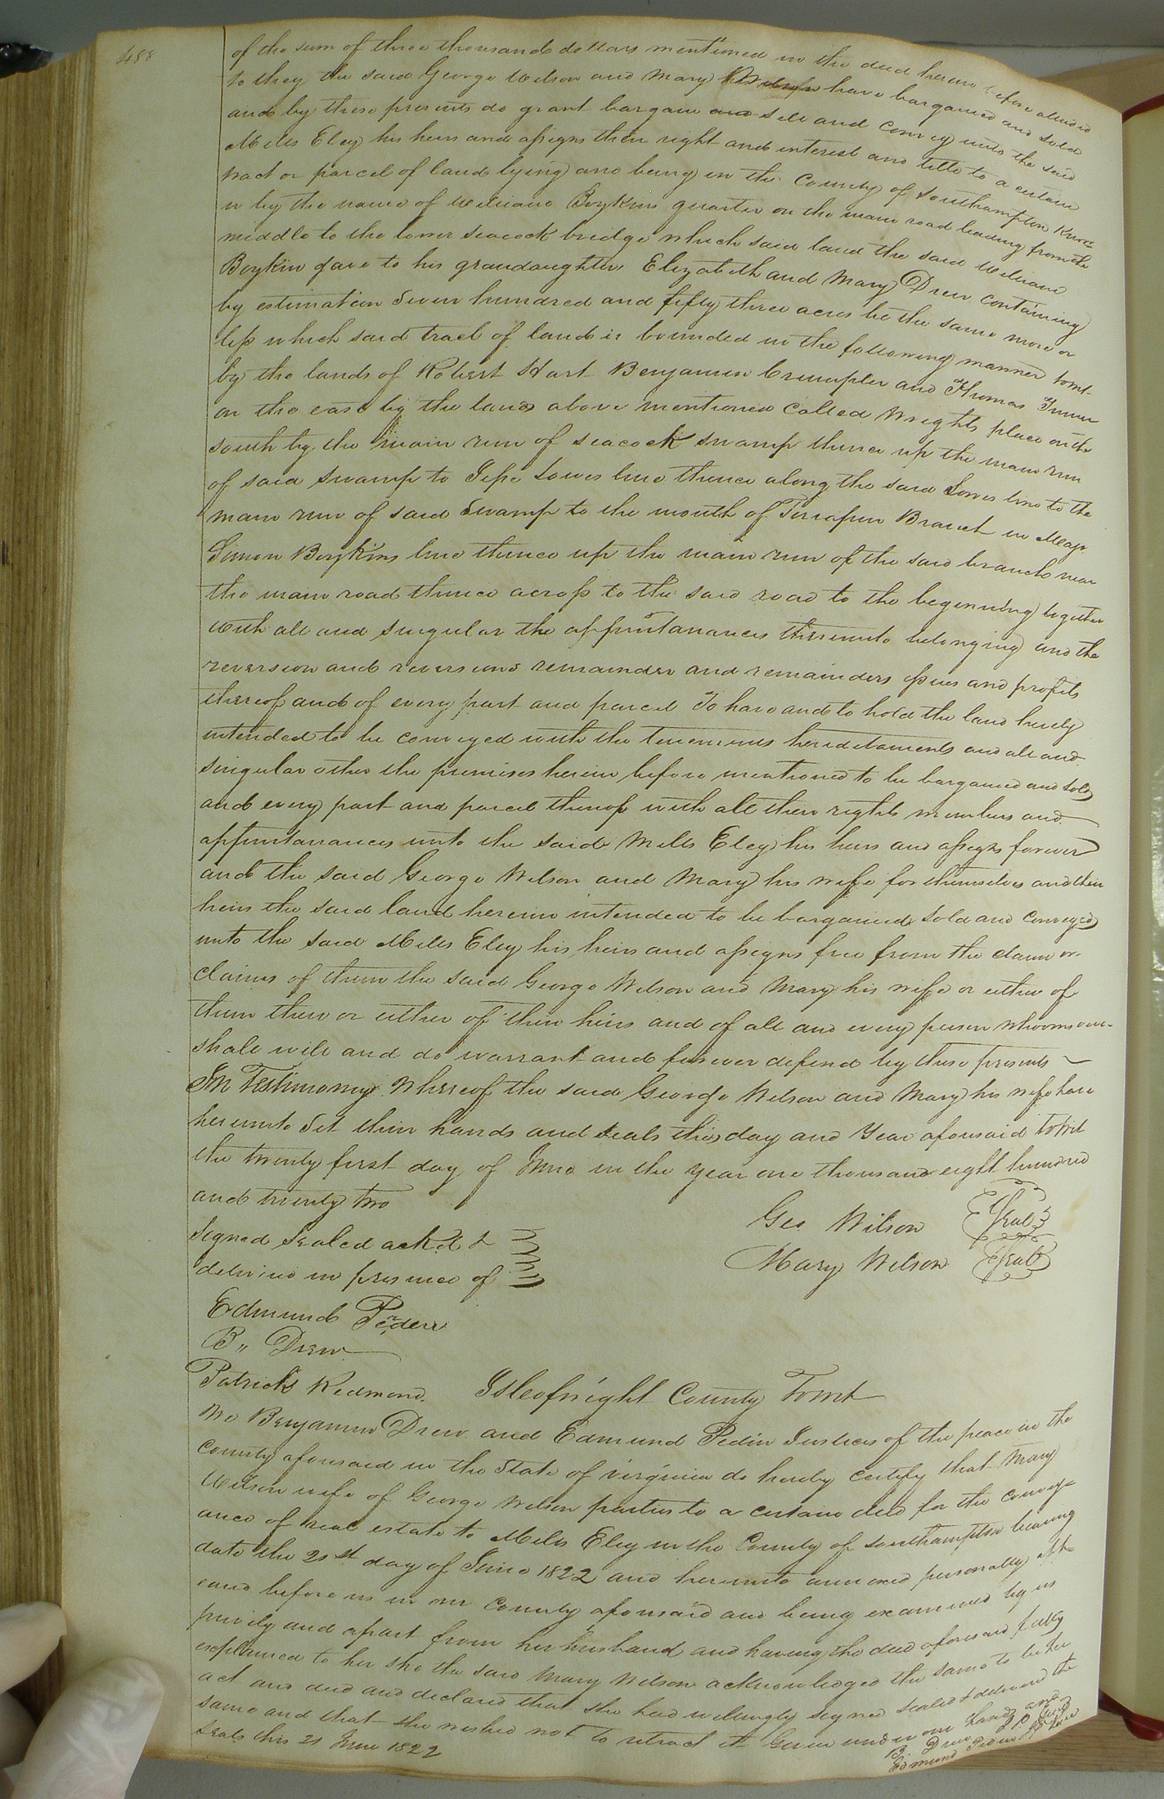 488
of the sum of three thousand dollars mentioned in the deed herein before alluded
to they the said George Wilson and Mary Wilson have bargained and sold
and by these presents do grant bargain and sell and convey unto the said
Mills Eley his heirs and assigns their right and interest and title to a certain
tract or parcel of land lying and being in the County of Southampton know
n by the name of William Boykins quarter on the main road leading from the
middle to the lower seacock bridge which said land the said William
Boykin gave to his grandaughters Elizabeth and Mary Drew containing
by estimation Seven hundred and fifty three acres be the same more or
less which said tract of land is bounded in the following manner towit
by the lands of Robert Hart Benjamin Crumpler and Thomas
on the east by the land above mentioned called Wrights place on the
south by the main run of seacock swamp thence up the main run
of said swamp to Jesse Loves line thence along the said Loves line to the
main run of said Swamp to the mouth of Terrapin Branch in Majr
Simon Boykins line thence up the main run of the said branch near
the main road thence across to the said road to the beginning together
with all and singular the appurtanances thereunto belonging and the
reversion and reversions remainder and remainders issues and profits
thereof and of every part and parcel To have and to hold the land hereby
intended to be conveyed with the tenements hereditaments and all and
singular other the premises herein before mentioned to be bargained and sold
and every part and parcel thereof with all their rights members and
appurtanances unto the said Mills Eley his heirs and assigns forever
and the said George Wilson and Mary his wife for themselves and their
heirs the said land herein intended to be bargained sold and conveyed
unto the said Mills Eley his heirs and assigns free from the claim or
claims of them the said George Wilson and Mary his wife or either of
them their or either of their heirs and of all and every person whomsoever
shall will and do warrant and forever defend by these presents
In Testimony Whereof the said George Wilson and Mary his wife have
hereunto Set their hands and seals this day and Year aforesaid towit
the twenty first day of June in the year one thousand eight hundred
and twenty two
Geo Wilson {Seal}
Signed Sealed ackd. &
Mary Wilson {Seal}
delivered in presence of
Edmund Peden
B,, Drew
Patrick Redmond. Isleofwight County Towit
We Benjamin Drew and Edmund Pedin Justices of the peace in the
County aforesaid in the State of virginia do hereby certify that Mary
Wilson wife of George Wilson parties to a certain deed for the convey
ance of real estate to Mills Eley in the County of Southampton bearing
date the 21st day of June 1822 and hereunto annexed personally app
eared before us in our County aforesaid and being examined by us
privily and apart from her husband and having the deed aforesaid fully
explained to her she the said Mary Wilson acknowledged the same to be her
act and deed and declared that she had willingly signed sealed & delivered the
same and that she wished not to retract it Given under our hands and
seals this 21 June 1822
B. Drew
Edmund Peden